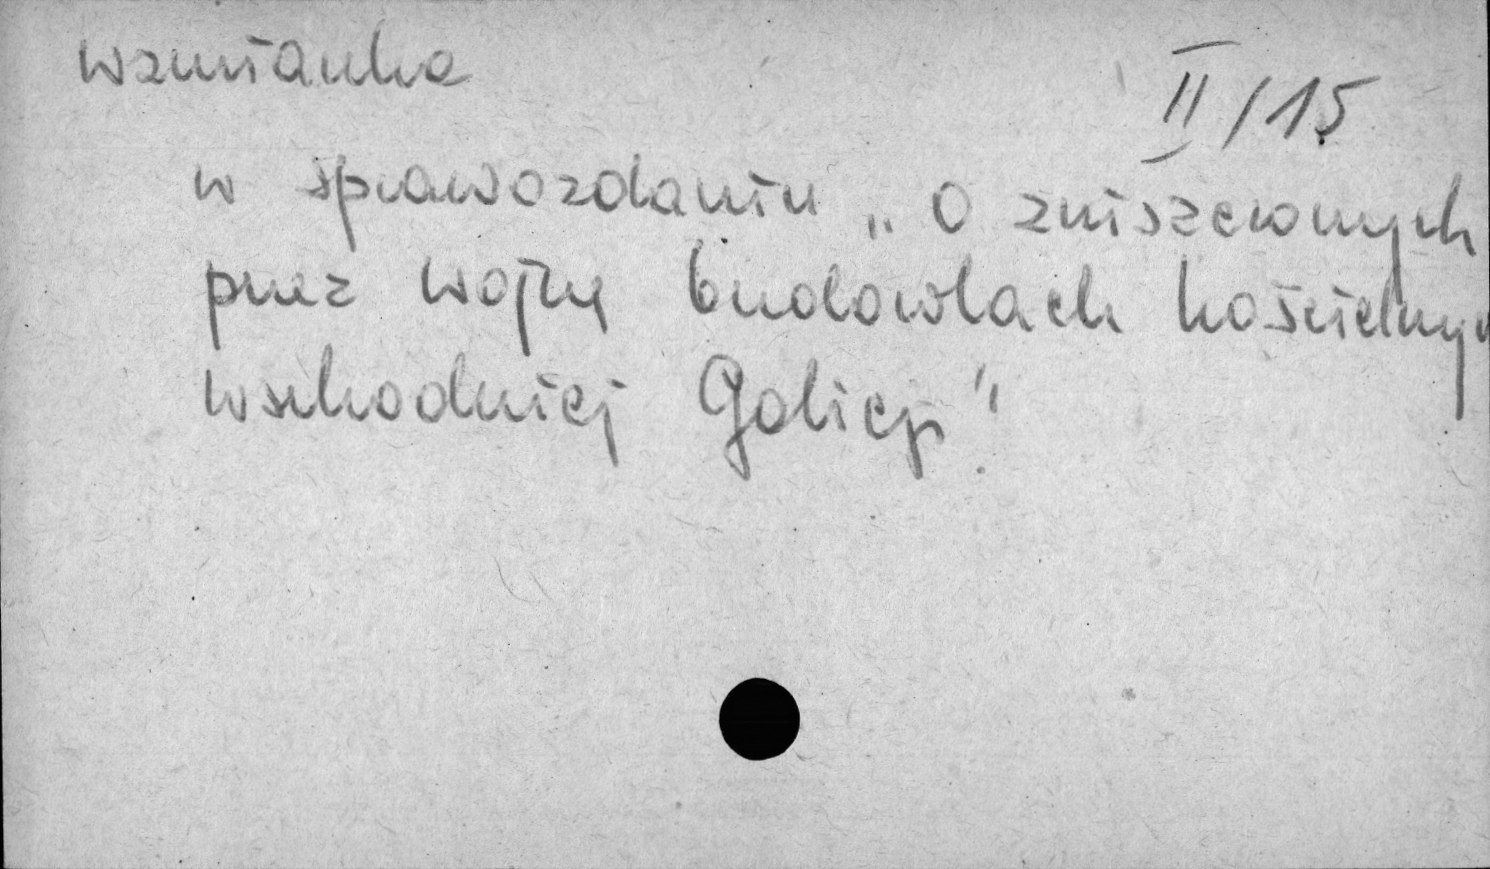 wzmianka
II/15
w sprawozdaniu „O zniszczonych
przez wojnę budowlach kościelnyc
wschodniej Galicji".